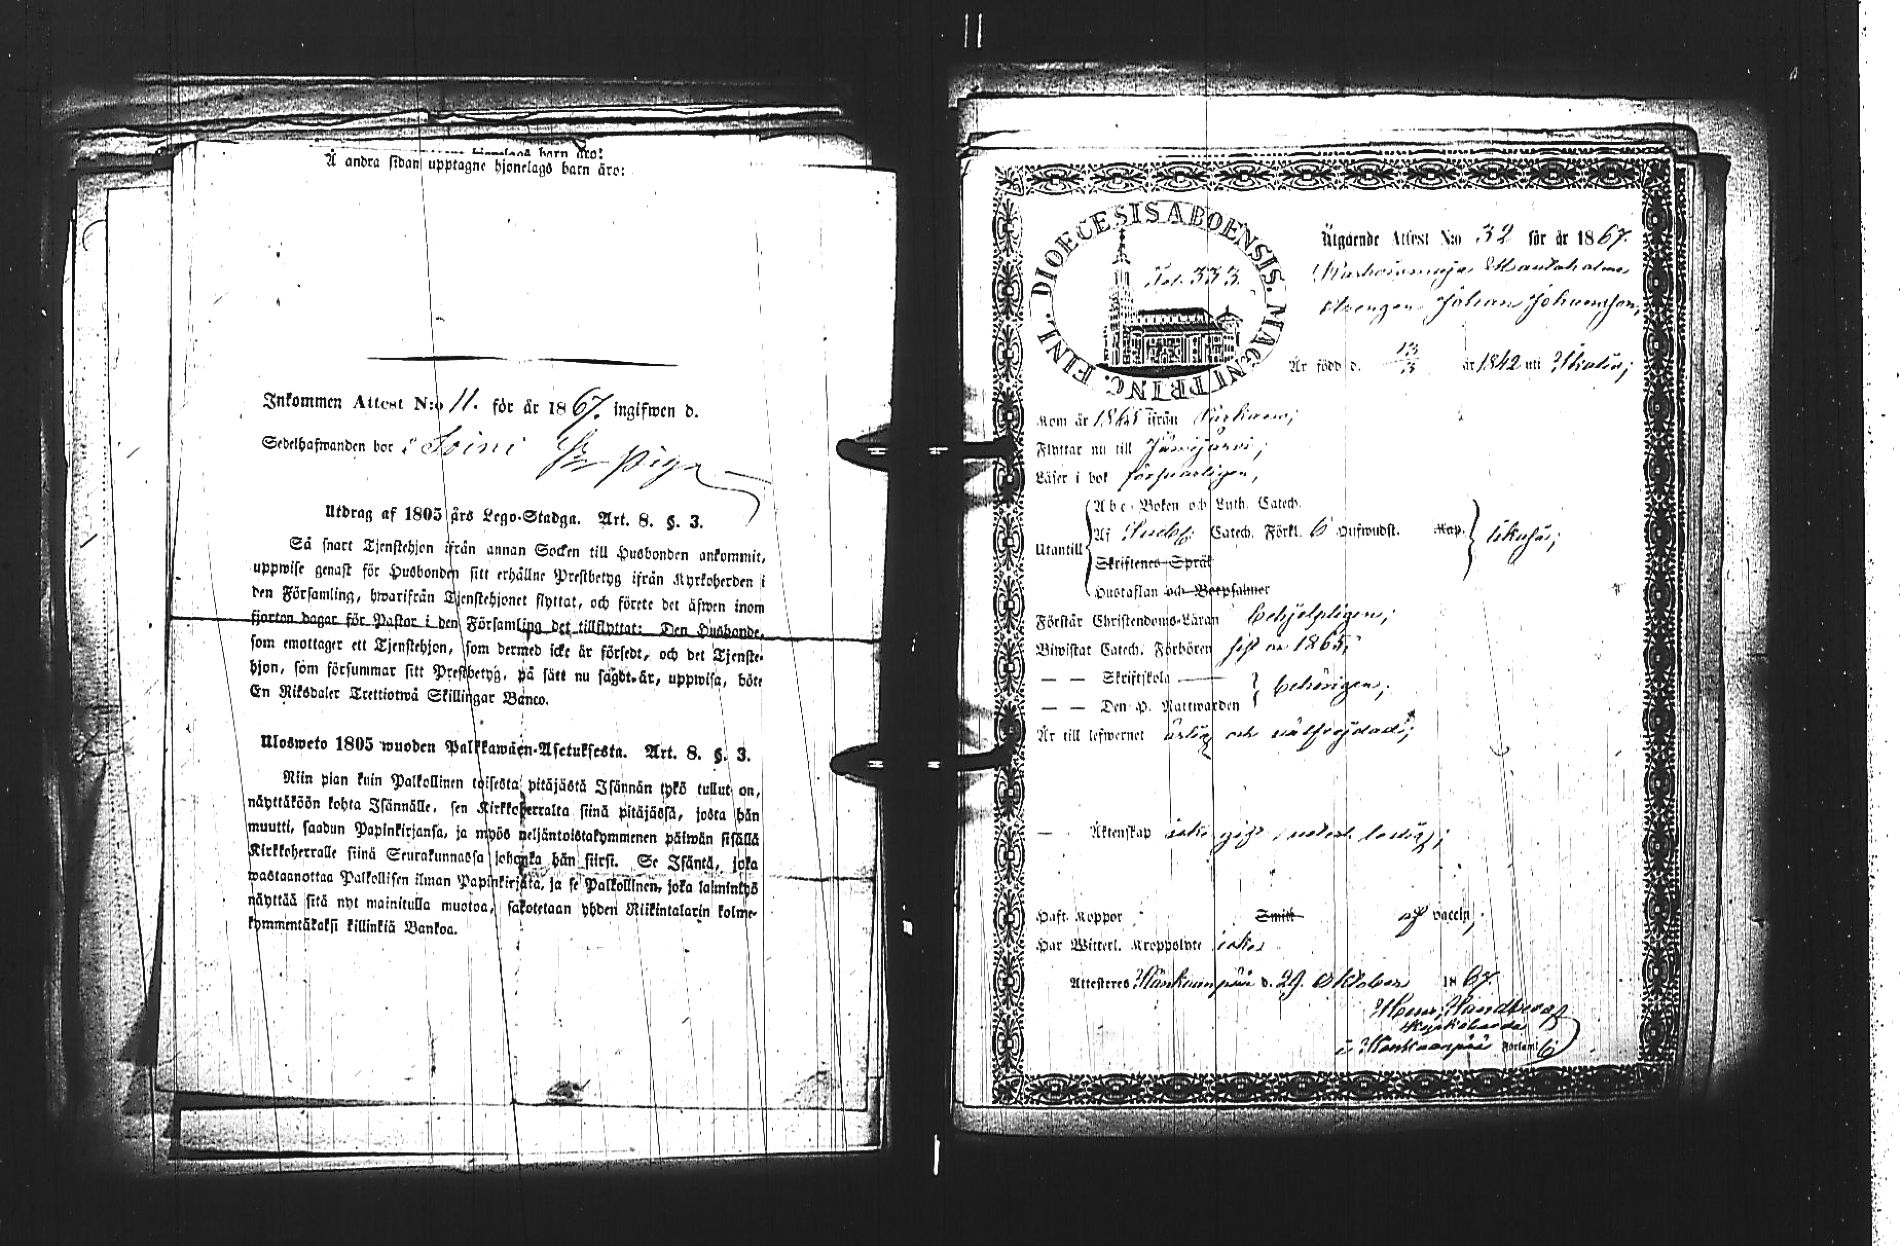 barn äro:
Å andra sidan upptagne hjonelags barn äro:
Inkommen Attest N:o 11. för år 1867. ingifwen d.
Sedelhafwanden bor i Soini
piga
Utdrag af 1805 års Lego-Stadga. Art. 8. §. 3.
Så snart Tjenstehjon ifrån annan Socken till Husbonden ankommit,
uppwise genast för Husbonden sitt erhållne Prestbetyg ifrån Kyrkoherden i
den Församling, hwarifrån Tjenstehjonet flyttat, och förete det äfwen inom
fjorton dagar för Pastor i den Församling det tillflyttat: Den Husbonde,
som emottager ett Tjenstehjon, som dermed icke är försedt, och det Tjenste-
hjon, som försummar sitt Prestbetyg, på sätt nu sagdt är, uppwisa, böte
En Riksdaler Trettiotwå Skillingar Banco.
Ulosweto 1805 wuoden Palkkawäen-Asetuksesta. Art. 8. §. 3.
Niin pian kuin Palkollinen toisesta pitäjästä Isännän tykö tullut on,
näyttäköön kohta Isännälle, sen Kirkkoherralta siinä pitäjässä, josta hän
muutti, saadun Papinkirjansa, ja myös neljäntoistakymmenen päiwän sisällä
Kirkkoherralle siinä Seurakunnassa johonka hän siirsi. Se Isäntä, joka
wastaanottaa Palkollisen ilman Papinkirjata, ja se Palkollinen, joka laiminlyö
näyttää sitä nyt mainitulla muotoa, sakotetaan yhden Riikintalarin kolme-
kymmentäkaksi killinkiä Bankoa.
DIOECESIS ABOENSIS. MAGNI PRINC. FINL.
Fol. 333.
Utgående Attest N:o 32 för år 1867.
Drengen Johan Johansson,
Är född d. 13/3 år 1842 uti
Kom år 1865 ifrån
Flyttar nu till Jämijärvi;
Läser i bok försvarligen,
Utantill
Abc-Boken och Luth. Catech.
Af Svebel. Catech. Förkl. 6 Hufwudst. Kap.
Skriftenes Språk
Hustaflan och Botpsalmer
Förstår Christendoms-Läran behjelpligen;
Biwistat Catech. Förhören sist år 1865;
— — Skriftskola
— — Den H. Nattwarden behörigen;
Är till lefwernet ärlig och välfrejdad;
— Äktenskap icke gift, utan ledig;
Haft Koppor Smitt af vaccin;
Har Witterl. Kroppslyte icke
Attesteres Kankaanpää d. 29. Oktober 1867.
Kyrkoherde
i Kankaanpää Församl.